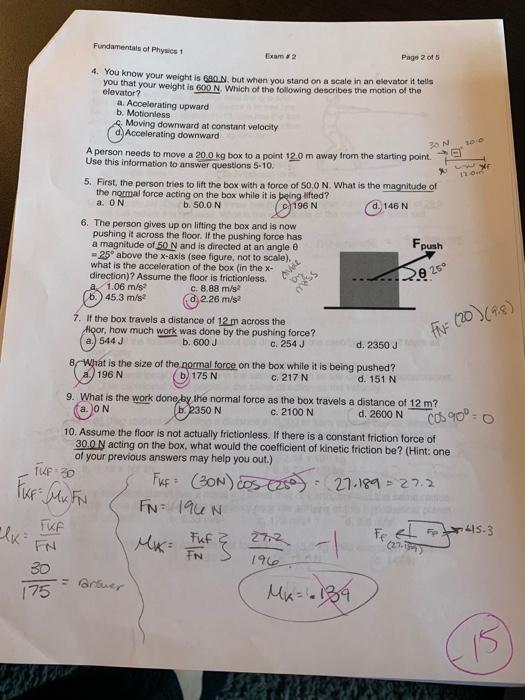 Fundamentals of Physics 1
Exam # 2
Page 2 of 5
4. You know your weight is 680 N, but when you stand on a scale in an elevator it tells
you that your weight is 600 N. Which of the following describes the motion of the
elevator?
a. Accelerating upward
b. Motionless
c. Moving downward at constant velocity
d. Accelerating downward
30 N
20.0
A person needs to move a 20.0 kg box to a point 12.0 m away from the starting point.
Use this information to answer questions 5-10.
12.0m
5. First, the person tries to lift the box with a force of 50.0 N. What is the magnitude of
the normal force acting on the box while it is being lifted?
a. 0 N b. 50.0 N c. 196 N d. 146 N
6. The person gives up on lifting the box and is now
pushing it across the floor. If the pushing force has
a magnitude of 50 N and is directed at an angle θ
= 25° above the x-axis (see figure, not to scale),
what is the acceleration of the box (in the x-
direction)? Assume the floor is frictionless.
a. 1.06 m/s² c. 8.88 m/s²
b. 45.3 m/s² d. 2.26 m/s²
divide
by
mass
Fpush
θ 25°
7. If the box travels a distance of 12 m across the
floor, how much work was done by the pushing force?
a. 544 J b. 600 J c. 254 J d. 2350 J
FN= (20)(9.8)
8. What is the size of the normal force on the box while it is being pushed?
a. 196 N b. 175 N c. 217 N d. 151 N
9. What is the work done by the normal force as the box travels a distance of 12 m?
a. 0 N b. 2350 N c. 2100 N d. 2600 N
cos 90° = 0
10. Assume the floor is not actually frictionless. If there is a constant friction force of
30.0 N acting on the box, what would the coefficient of kinetic friction be? (Hint: one
of your previous answers may help you out.)
FKF = 30
FKF = (30N) cos (25°) = (27.189 = 27.2
FKF = μK FN
FN = 196 N
μK = FKF
FN
μK = FKF
FN
27.2
196
-1
FF
FP
45.3
(27.189)
30
175
= answer
μK = .139
-15